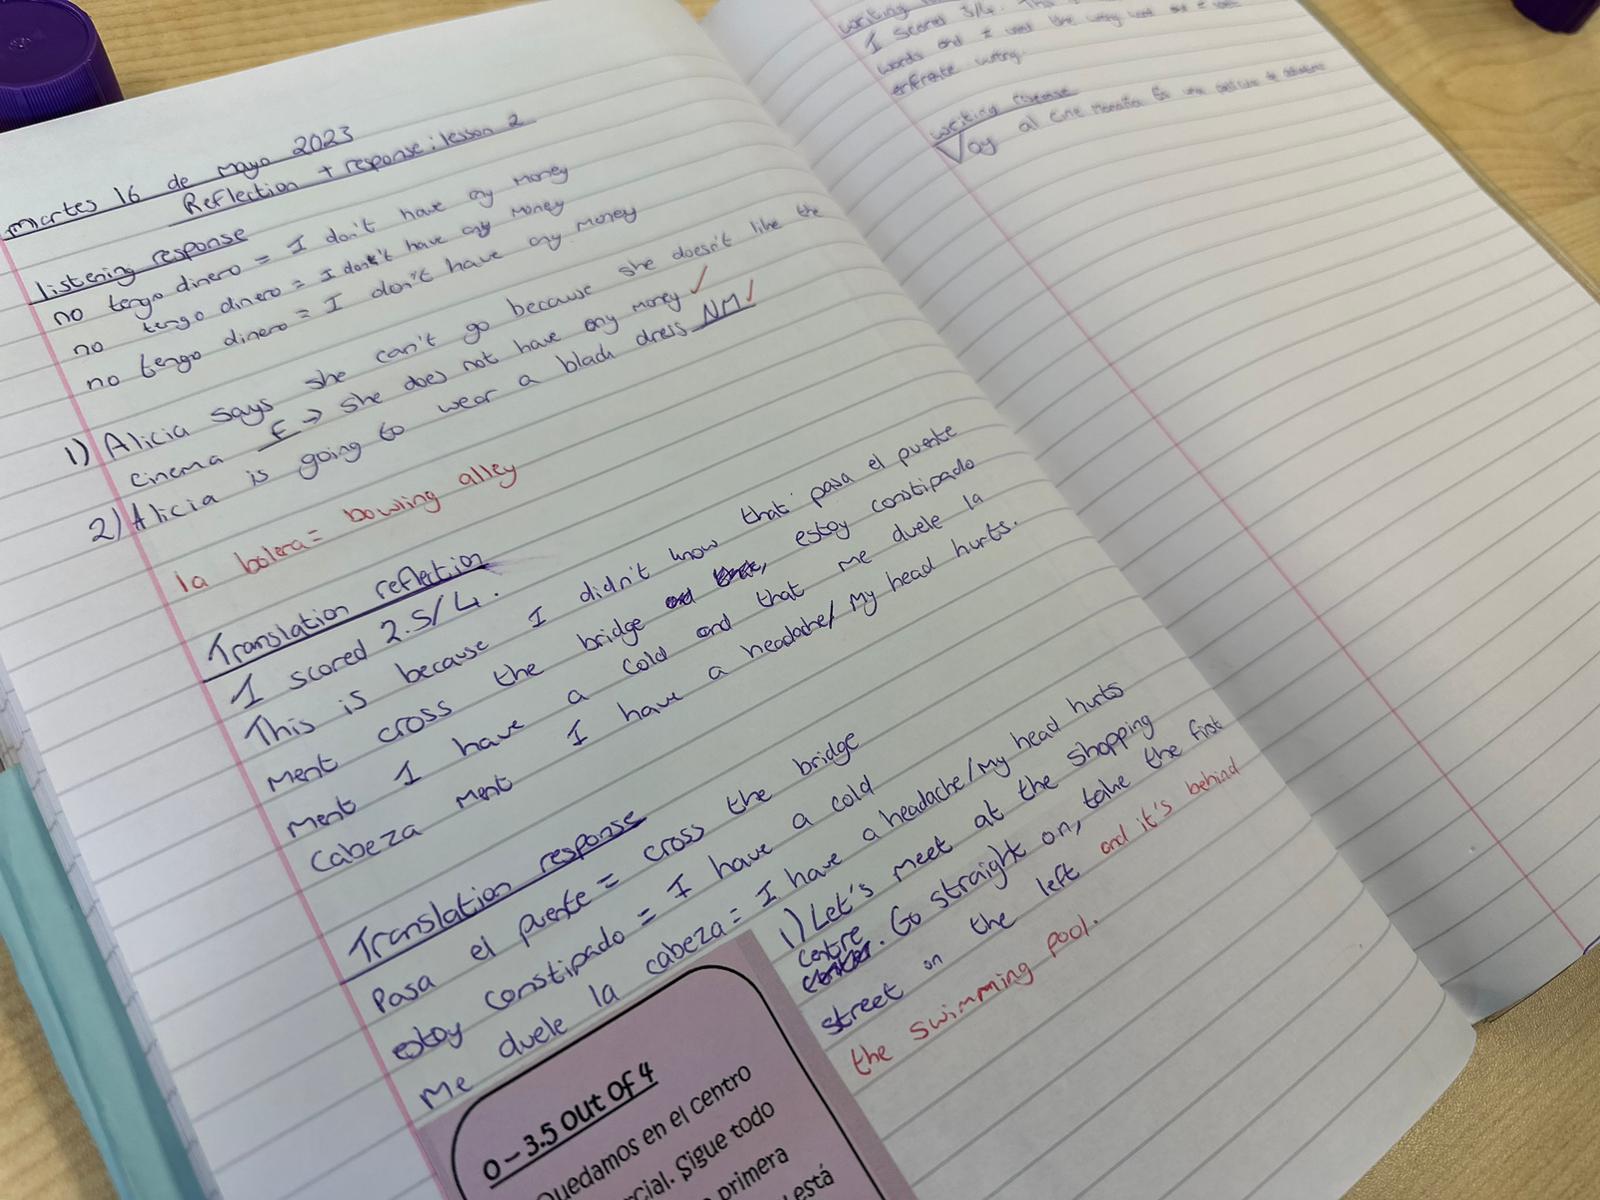 martes 16 de mayo 2023
Reflection + response: lesson 2
listening response
no tengo dinero = I don't have any money
no tengo dinero = I don't have any money
no tengo dinero = I don't have any money
1) Alicia says she can't go because she doesn't like the
cinema F → she does not have any money ✓
2) Alicia is going to wear a black dress NM ✓
la bolera = bowling alley
Translation reflection
I scored 2.5/4.
This is because I didn't know that pasa el puente
ment cross the bridge estoy constipado
ment I have a cold and that me duele la
cabeza ment I have a headache/ my head hurts.
Translation response
Pasa el puente = cross the bridge
estoy constipado = I have a cold
me duele la cabeza = I have a headache/my head hurts
1) Let's meet at the shopping
centre. Go straight on, take the first
street on the left and it's behind
the swimming pool.
0 – 3.5 out of 4
Quedamos en el centro
Sigue todo
primera
está
writing
I scored 3/4.
words and I used the wrong word and I
writing.
writing response
Voy al cine mañana